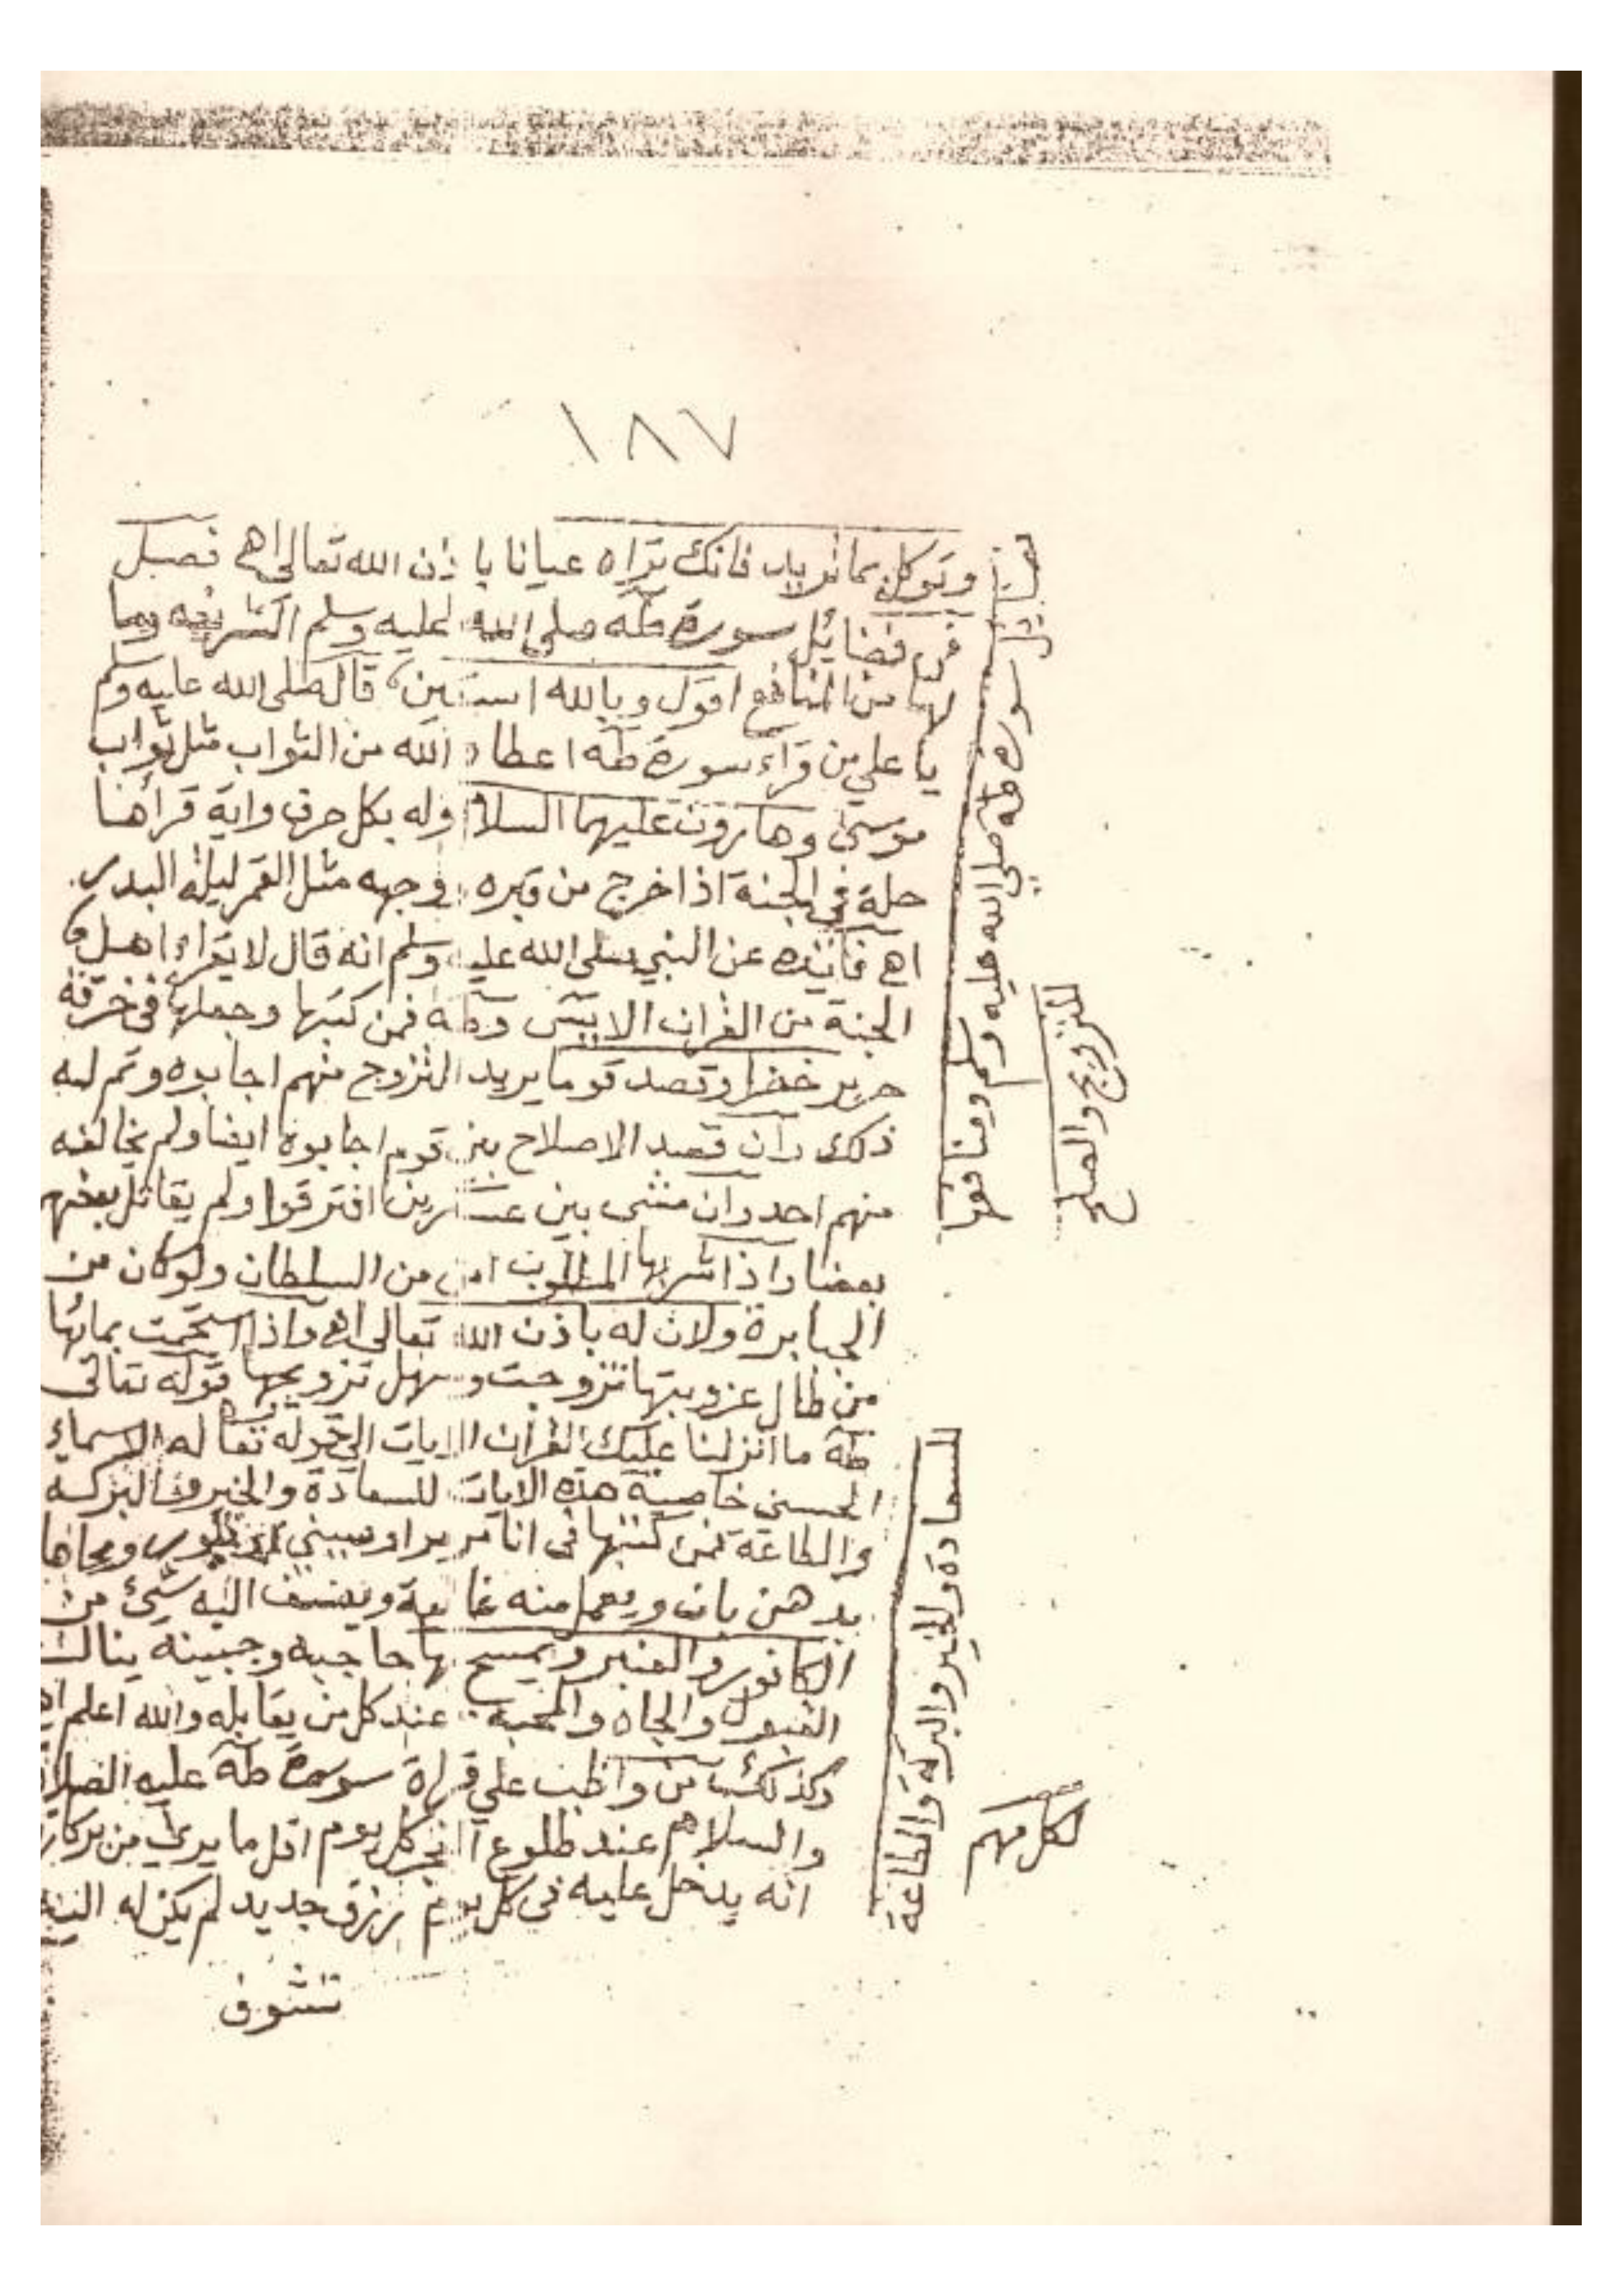 ١٨٧
وتوكل بما تريد فانك تراه عيانا باذن الله تعالى اهـ فصل
في فضايل سورة طه صلى الله عليه وسلم الشريفه وما
لها من المنافع اقول وبالله استعين قال صلى الله عليه وسلم
يا علي من قراء سورة طه اعطاه الله من الثواب مثل ثواب
موسى وهارون عليهما السلام وله بكل حرف واية قراها
حلة في الجنة اذا خرج من قبره وجهه مثل القمر ليلة البدر
اهـ فائده عن النبي صلى الله عليه وسلم انه قال لا يقراء اهل
الجنة من القران الا يس وطه فمن كتبها وجعلها في خرقة
حرير خضرا وقصد قوما يريد التزوج منهم اجابوه وتم له
ذلك وان قصد الاصلاح بين قوم اجابوه ايضا ولم يخالفه
منهم احد وان مشى بين عسكرين افترقوا ولم يقاتل بعضهم
بعضا واذا شربها المطلوب امن من السلطان ولو كان من
الجبابرة ولان له باذن الله تعالى اهـ واذا استحمت بمائها
من طال عزوبتها تزوجت وسهل تزويجها قوله تعالى
طه ما انزلنا عليك القران الايات الي قوله تعالى له الاسماء
الحسنى خاصية هذه الايات للسعادة والخير والبركه
والطاعة فمن كتبها في انا حرير او صيني او بلور ومحاها
بدهن بان ويعمل منه غالية ويضيف اليه شيئ من
الكافور والعنبر ويمسح بها حاجبه وجبينه ينال
القبول والجاه والمحبه عند كل من يقابله والله اعلم اهـ
وكذلك من واظب علي قراة سورة طه عليه الصلاة
والسلام عند طلوع الفجر كل يوم اقل ما يرى من بركاته
انه يدخل عليه في كل يوم رزق جديد لم يكن له
تشوف
سورة طه صلى الله عليه وسلم ومنافعها
للتزويج والصلح
للسعادة والخير والبركة والطاعة
لكل مهم